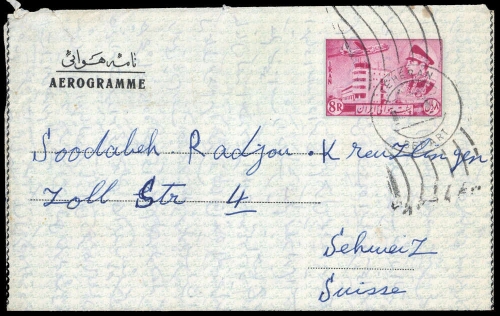 نامه هوائی
AEROGRAMME
IRAN
8R
TEHERAN
Soodabeh Radjou. Kreuzlingen
Zoll Str 4
Schweiz
Suisse